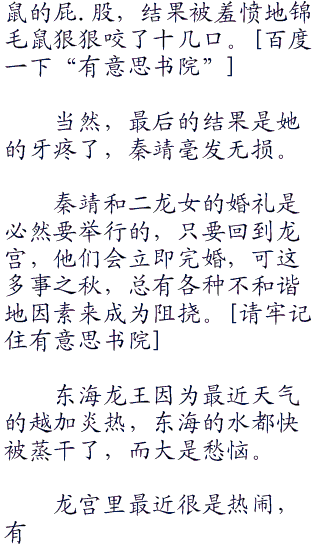 鼠的屁.股，结果被羞愤地锦
毛鼠狠狠咬了十几口。[百度
一下“有意思书院”]
当然，最后的结果是她
的牙疼了，秦靖毫发无损。
秦靖和二龙女的婚礼是
必然要举行的，只要回到龙
宫，他们会立即完婚，可这
多事之秋，总有各种不和谐
地因素来成为阻挠。[请牢记
住有意思书院]
东海龙王因为最近天气
的越加炎热，东海的水都快
被蒸干了，而大是愁恼。
龙宫里最近很是热闹，
有